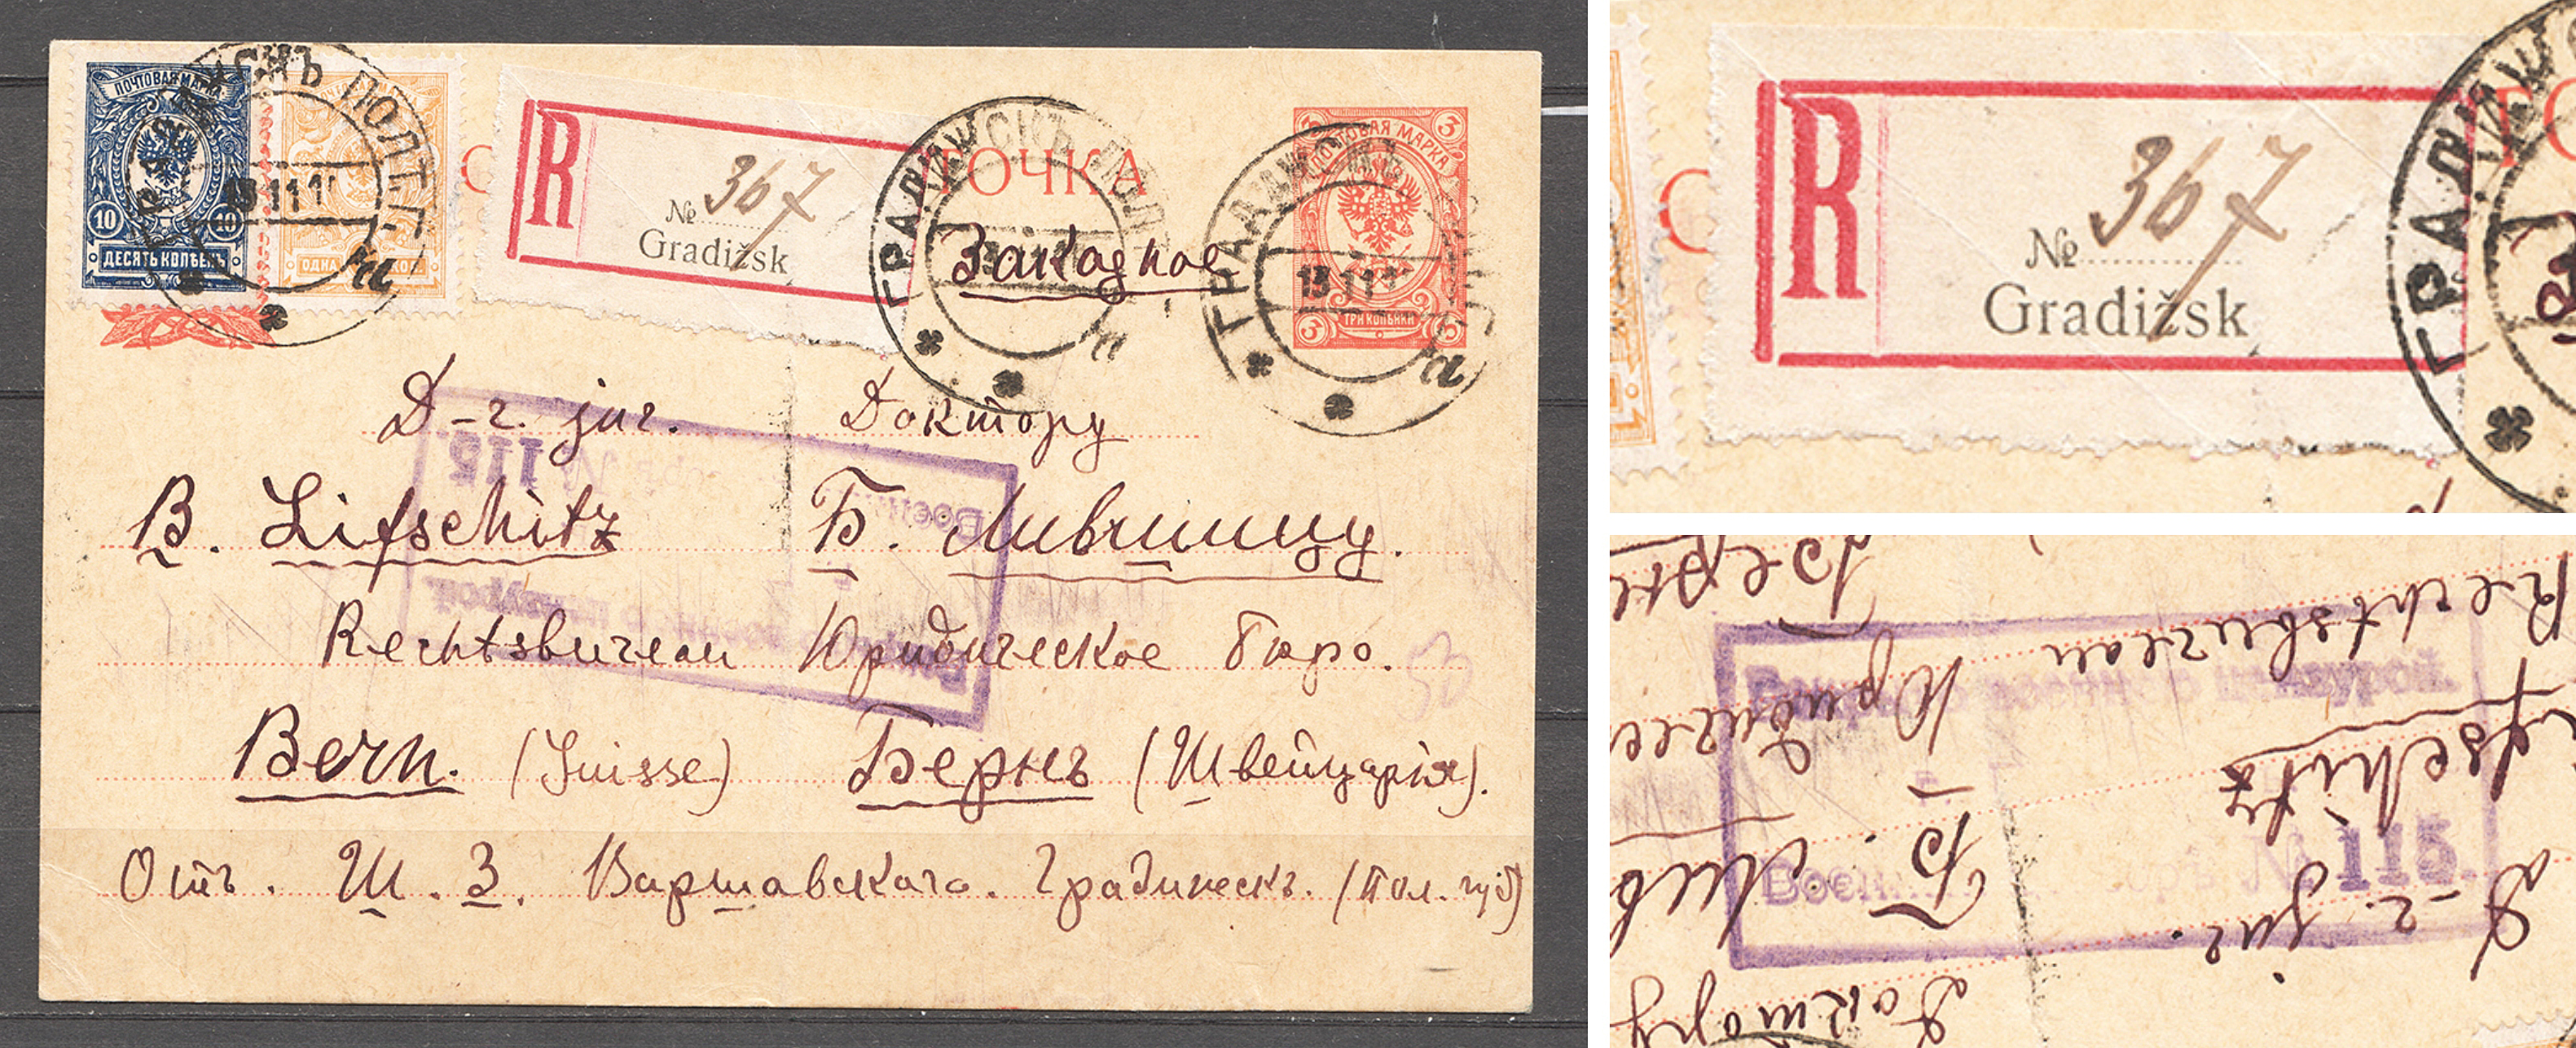 ПОЧТОВАЯ МАРКА
10 10
ДЕСЯТЬ КОПѢЕКЪ
ОДНА КОП.
ПОЛТ. Г.
13 11 1
R
№ 367
Gradižsk
ТОЧКА
ГРАДИЖСКЪ ПОЛ
Заказное
3 ПОЧТОВАЯ МАРКА 3
3 ТРИ КОПѢЙКИ 3
ГРАДИЖСКЪ
13 11 1
Д-r. jur. Доктору
B. Lifschitz Б. Лившицу.
Rechtsbureau Юридическое бюро.
Bern. (Suisse) Бернъ (Швейцарія).
Отъ. Ш. З. Варшавскаго. Градижскъ. (Пол. губ)
Вскрыто военной цензурой.
Воен № 115.
R
№ 367
Gradižsk
ГРАДИЖ
Вскрыто военной цензурой.
Воен № 115.